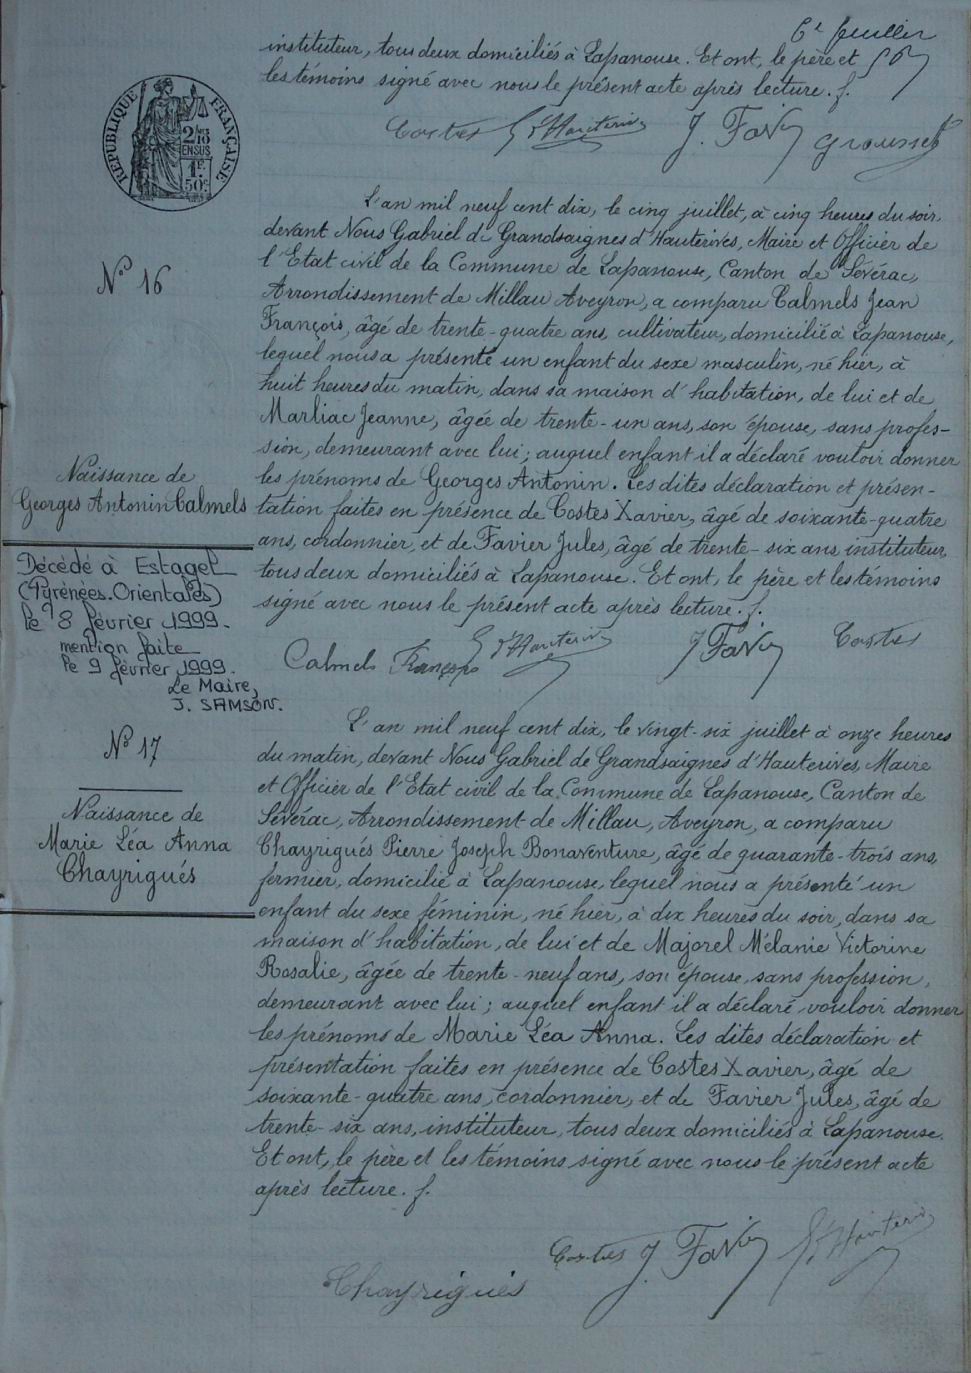 6e feuillet
instituteur, tous deux domiciliés à Lapanouse. Et ont, le père et
les témoins signé avec nous le présent acte après lecture. f.
RÉPUBLIQUE FRANÇAISE
2/10
EN SUS
1F.
50c
Costes G d'Hauterives J. Favier Grousset
L'an mil neuf cent dix, le cinq juillet, à cinq heures du soir,
devant Nous Gabriel de Grandsaignes d'Hauterives, Maire et Officier de
l'Etat civil de la Commune de Lapanouse, Canton de Sévérac,
N° 16
Arrondissement de Millau Aveyron, a comparu Calmels Jean
François, âgé de trente-quatre ans, cultivateur, domicilié à Lapanouse,
lequel nous a présenté un enfant du sexe masculin, né hier, à
huit heures du matin, dans sa maison d'habitation, de lui et de
Marliac Jeanne, âgée de trente-un ans, son épouse, sans profes-
sion, demeurant avec lui; auquel enfant il a déclaré vouloir donner
les prénoms de Georges Antonin. Les dites déclaration et présen-
tation faites en présence de Costes Xavier, âgé de soixante-quatre
ans, cordonnier, et de Favier Jules, âgé de trente-six ans, instituteur,
tous deux domiciliés à Lapanouse. Et ont, le père et les témoins
signé avec nous le présent acte après lecture. f.
Naissance de
Georges Antonin Calmels
Décédé à Estagel
(Pyrénées-Orientales)
le 8 février 1999.
mention faite
le 9 février 1999.
Le Maire,
J. SAMSON.
Calmels François G d'Hauterives J Favier Costes
N° 17
Naissance de
Marie Léa Anna
Chayrigués
L'an mil neuf cent dix, le vingt-six juillet à onze heures
du matin, devant Nous Gabriel de Grandsaignes d'Hauterives, Maire
et Officier de l'Etat civil de la Commune de Lapanouse, Canton de
Sévérac, Arrondissement de Millau, Aveyron, a comparu
Chayrigués Pierre Joseph Bonaventure, âgé de quarante-trois ans,
fermier, domicilié à Lapanouse, lequel nous a présenté un
enfant du sexe féminin, né hier, à dix heures du soir, dans sa
maison d'habitation, de lui et de Majorel Mélanie Victorine
Rosalie, âgée de trente-neuf ans, son épouse, sans profession,
demeurant avec lui; auquel enfant il a déclaré vouloir donner
les prénoms de Marie Léa Anna. Les dites déclaration et
présentation faites en présence de Costes Xavier, âgé de
soixante-quatre ans, cordonnier, et de Favier Jules, âgé de
trente-six ans, instituteur, tous deux domiciliés à Lapanouse.
Et ont, le père et les témoins signé avec nous le présent acte
après lecture. f.
Costes J. Favier G d'Hauterives
Chayrigués